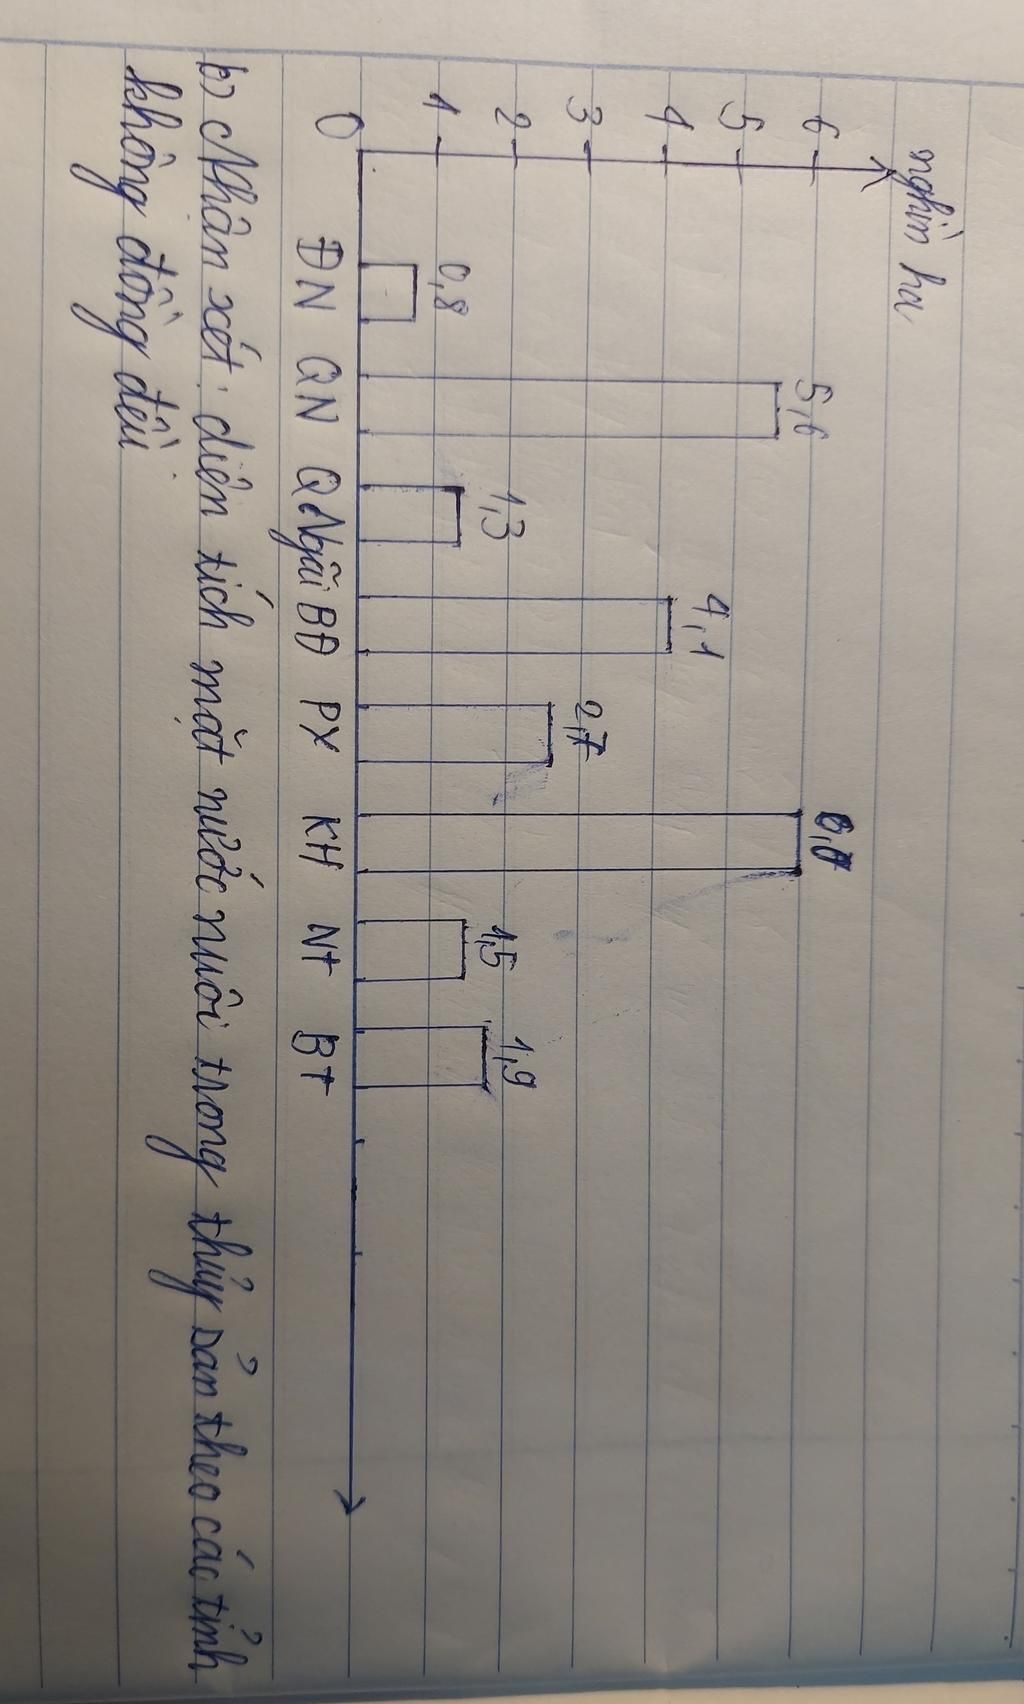 nghìn ha
6
5
4
3
2
1
0
0,8
5,6
1,3
4,1
2,7
1,5
1,9
ĐN QN QNgãi BĐ PY KH NT BT
b) Nhận xét: diện tích mặt nước nuôi trong thủy sản theo các tỉnh
không đồng đều